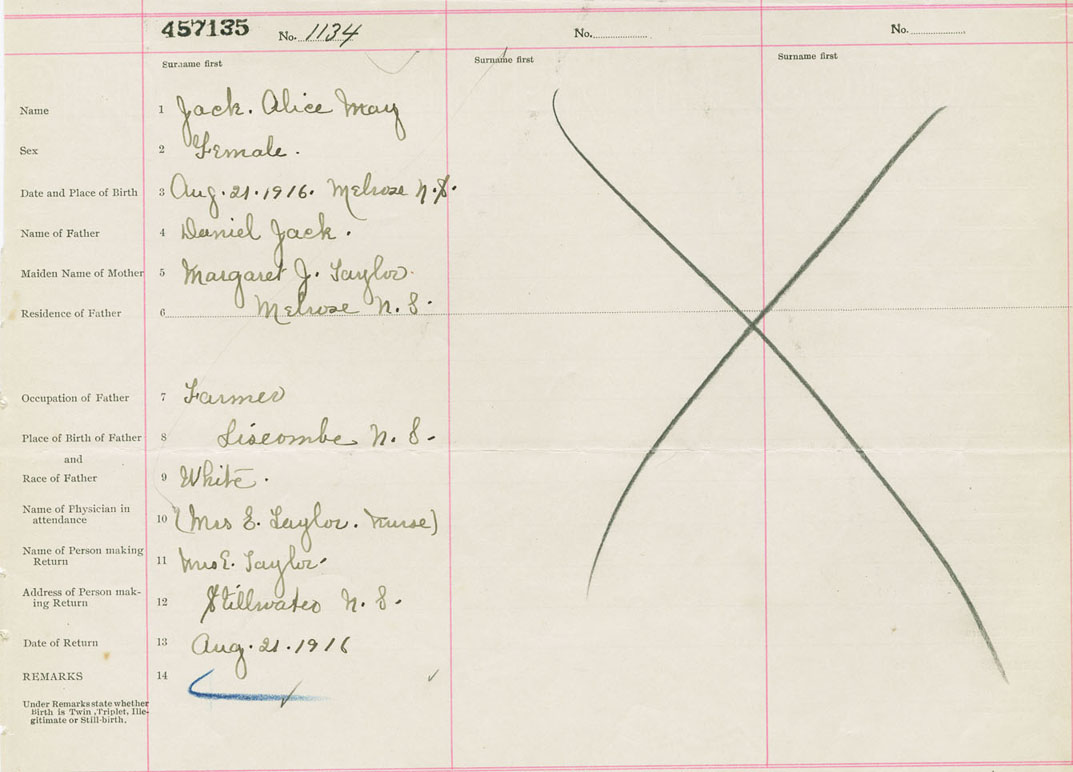 457135 No. 1134 No. No.
Surname first Surname first Surname first
Name 1 Jack. Alice May
Sex 2 Female.
Date and Place of Birth 3 Aug. 21. 1916. Melrose N.S.
Name of Father 4 Daniel Jack.
Maiden Name of Mother 5 Margaret J. Taylor.
Residence of Father 6 Melrose N.S.
Occupation of Father 7 Farmer
Place of Birth of Father 8 Liscombe N.S.
and
Race of Father 9 White.
Name of Physician in
attendance 10 (Mrs E. Taylor. Nurse)
Name of Person making
Return 11 Mrs E. Taylor.
Address of Person mak-
ing Return 12 Stillwater N.S.
Date of Return 13 Aug. 21. 1916
REMARKS 14
Under Remarks state whether
Birth is Twin, Triplet, Ille-
gitimate or Still-birth.